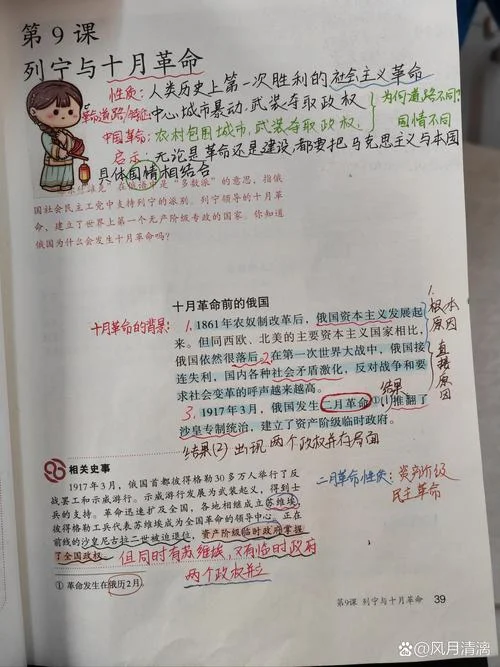 第 9 课
列宁与十月革命
性质：人类历史上第一次胜利的社会主义革命
革命道路/特征：中心城市暴动，武装夺取政权
中国革命：农村包围城市，武装夺取政权.
为何道路不同？
国情不同
启示：无论是革命还是建设，都要把马克思主义与本国
具体国情相结合
在俄语中是“多数派”的意思，指俄
国社会民主工党中支持列宁的派别。列宁领导的十月革
命，建立了世界上第一个无产阶级专政的国家。你知道
俄国为什么会发生十月革命吗？
十月革命前的俄国
十月革命的背景：
1. 1861年农奴制改革后，俄国资本主义发展起
来。但同西欧、北美的主要资本主义国家相比，
俄国依然很落后。2.在第一次世界大战中，俄国接
连失利，国内各种社会矛盾激化，反对战争和要
求社会变革的呼声越来越高。
结果
3. 1917年3月，俄国发生二月革命①(1)推翻了
沙皇专制统治，建立了资产阶级临时政府。
结果(2) 出现两个政权并存局面
1.
根本
原因
直接
原因
相关史事
1917年3月，俄国首都彼得格勒30多万人举行了反
战罢工和示威游行。示威游行发展为武装起义，得到士
兵的支持。革命迅速扩及全国，各地相继成立苏维埃，
彼得格勒工兵代表苏维埃成为全国革命的领导中心。正在
前线的沙皇尼古拉二世被迫退位，资产阶级临时政府掌握
了全国政权。
但同时有苏维埃，又有临时政府
两个政权并立
二月革命性质：资产阶级
民主革命
① 革命发生在俄历2月。
第9课 列宁与十月革命 39
百家号/风月清漓